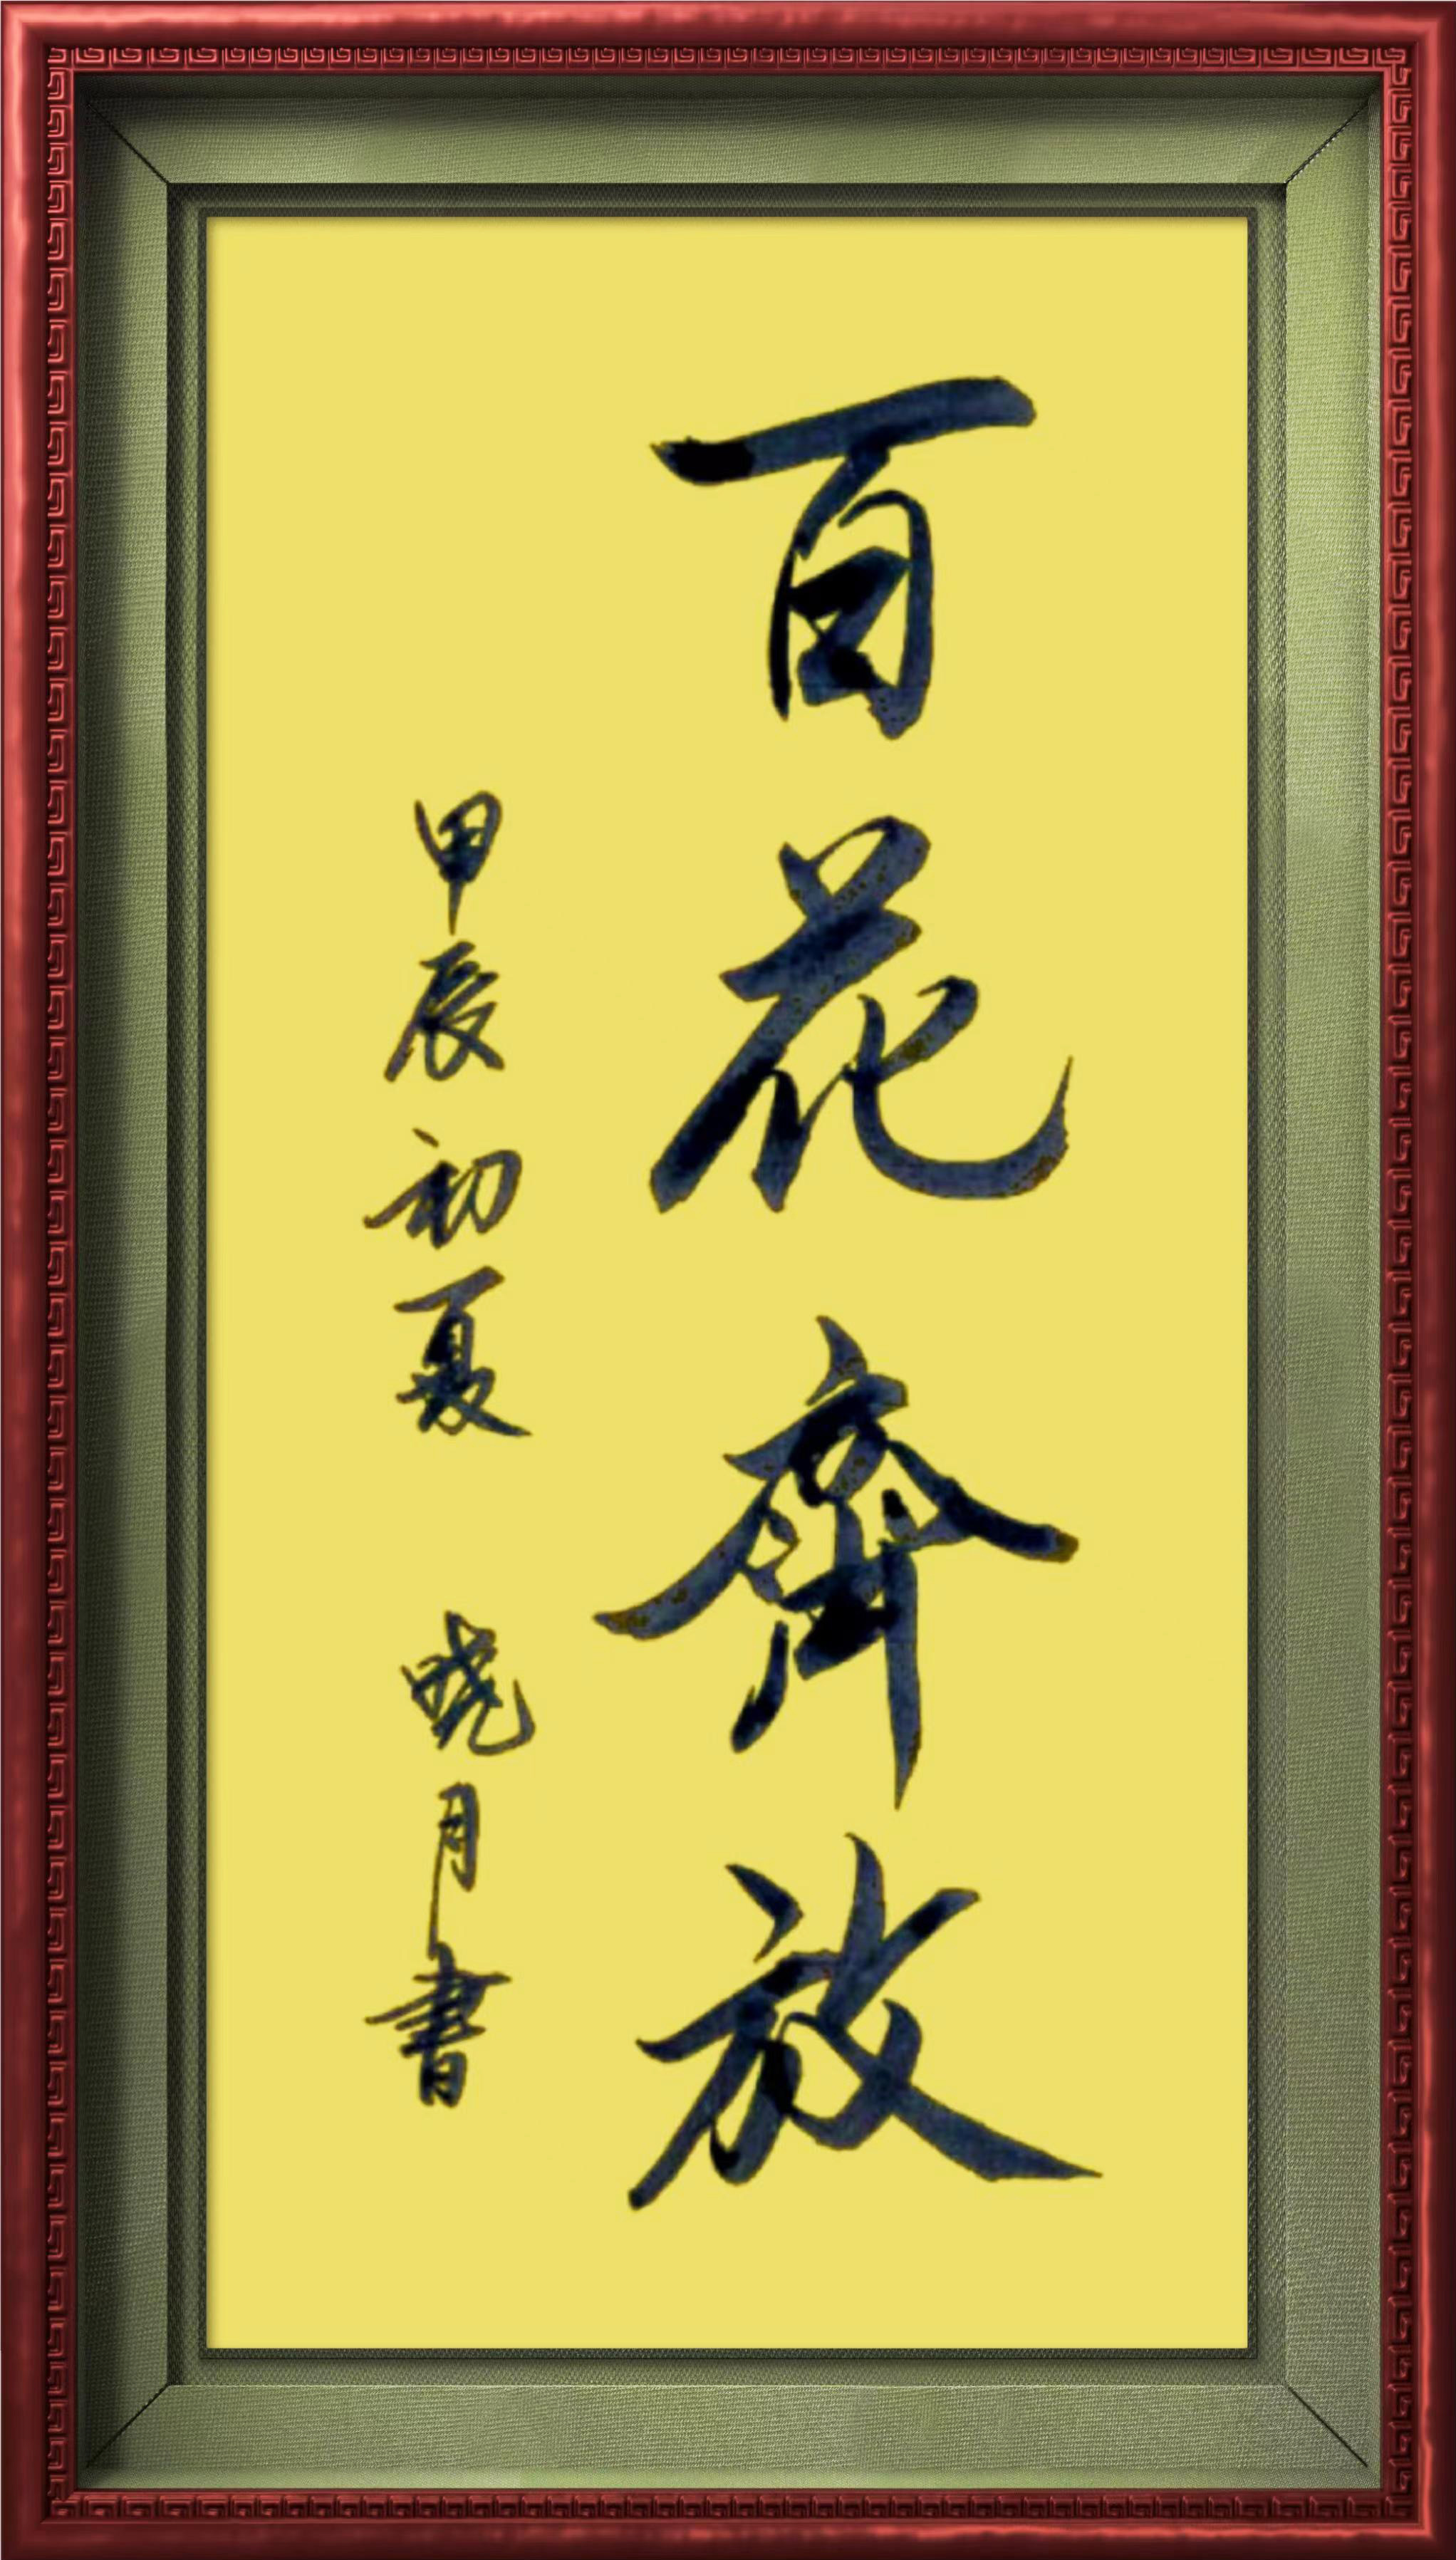 百花齊放
甲辰初夏 晓月書